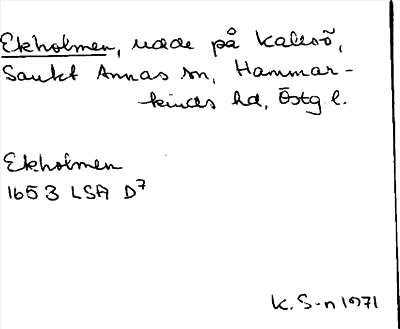 Ekholmen, udde på Kallsö,
Sankt Annas sn, Hammar-
kinds hd, Östg l.
Ekholmen
1653 LSA D7
K. S-n 1971